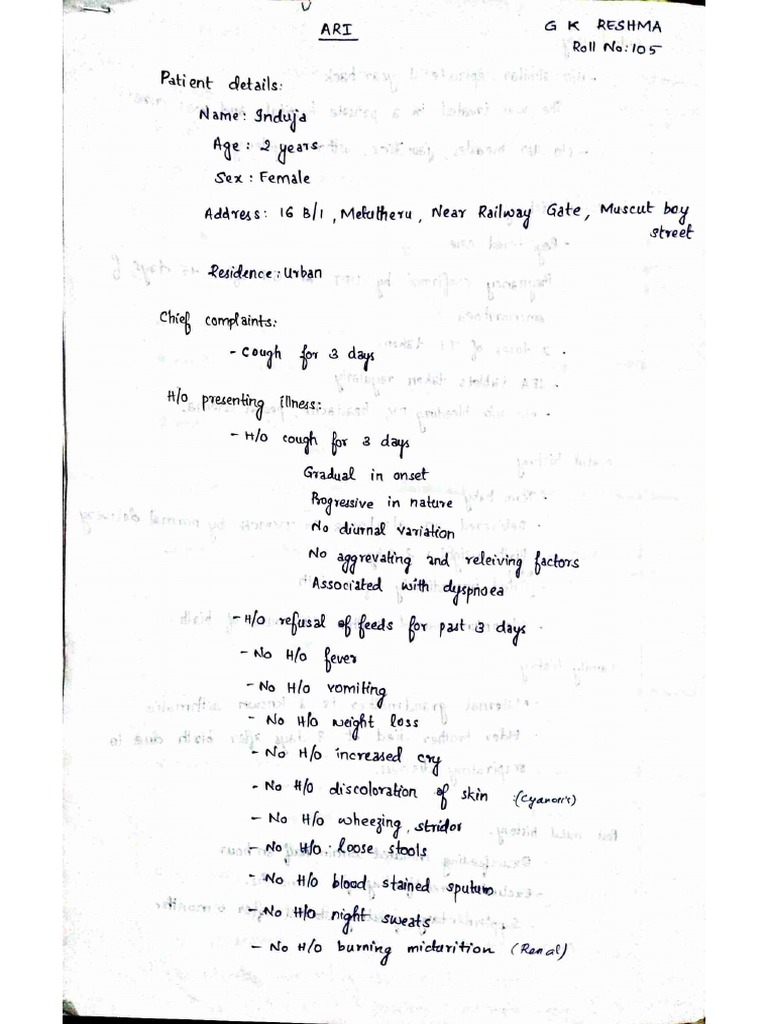 ARI
G K RESHMA
Roll No: 105
Patient details:
Name: Induja
Age: 2 years
Sex: Female
Address: 16 B/1, Mefutheru, Near Railway Gate, Muscut boy
street
Residence: Urban
Chief complaints:
- Cough for 3 days
H/o presenting illness:
- H/o cough for 3 days
Gradual in onset
Progressive in nature
No diurnal variation
No aggrevating and releiving factors
Associated with dyspnoea
- H/o refusal of feeds for past 3 days
- No H/o fever
- No H/o vomiting
- No H/o weight loss
- No H/o increased cry
- No H/o discoloration of skin (cyanosis)
- No H/o wheezing, stridor
- No H/o loose stools
- No H/o blood stained sputum
- No H/o night sweats
- No H/o burning micturition (Renal)